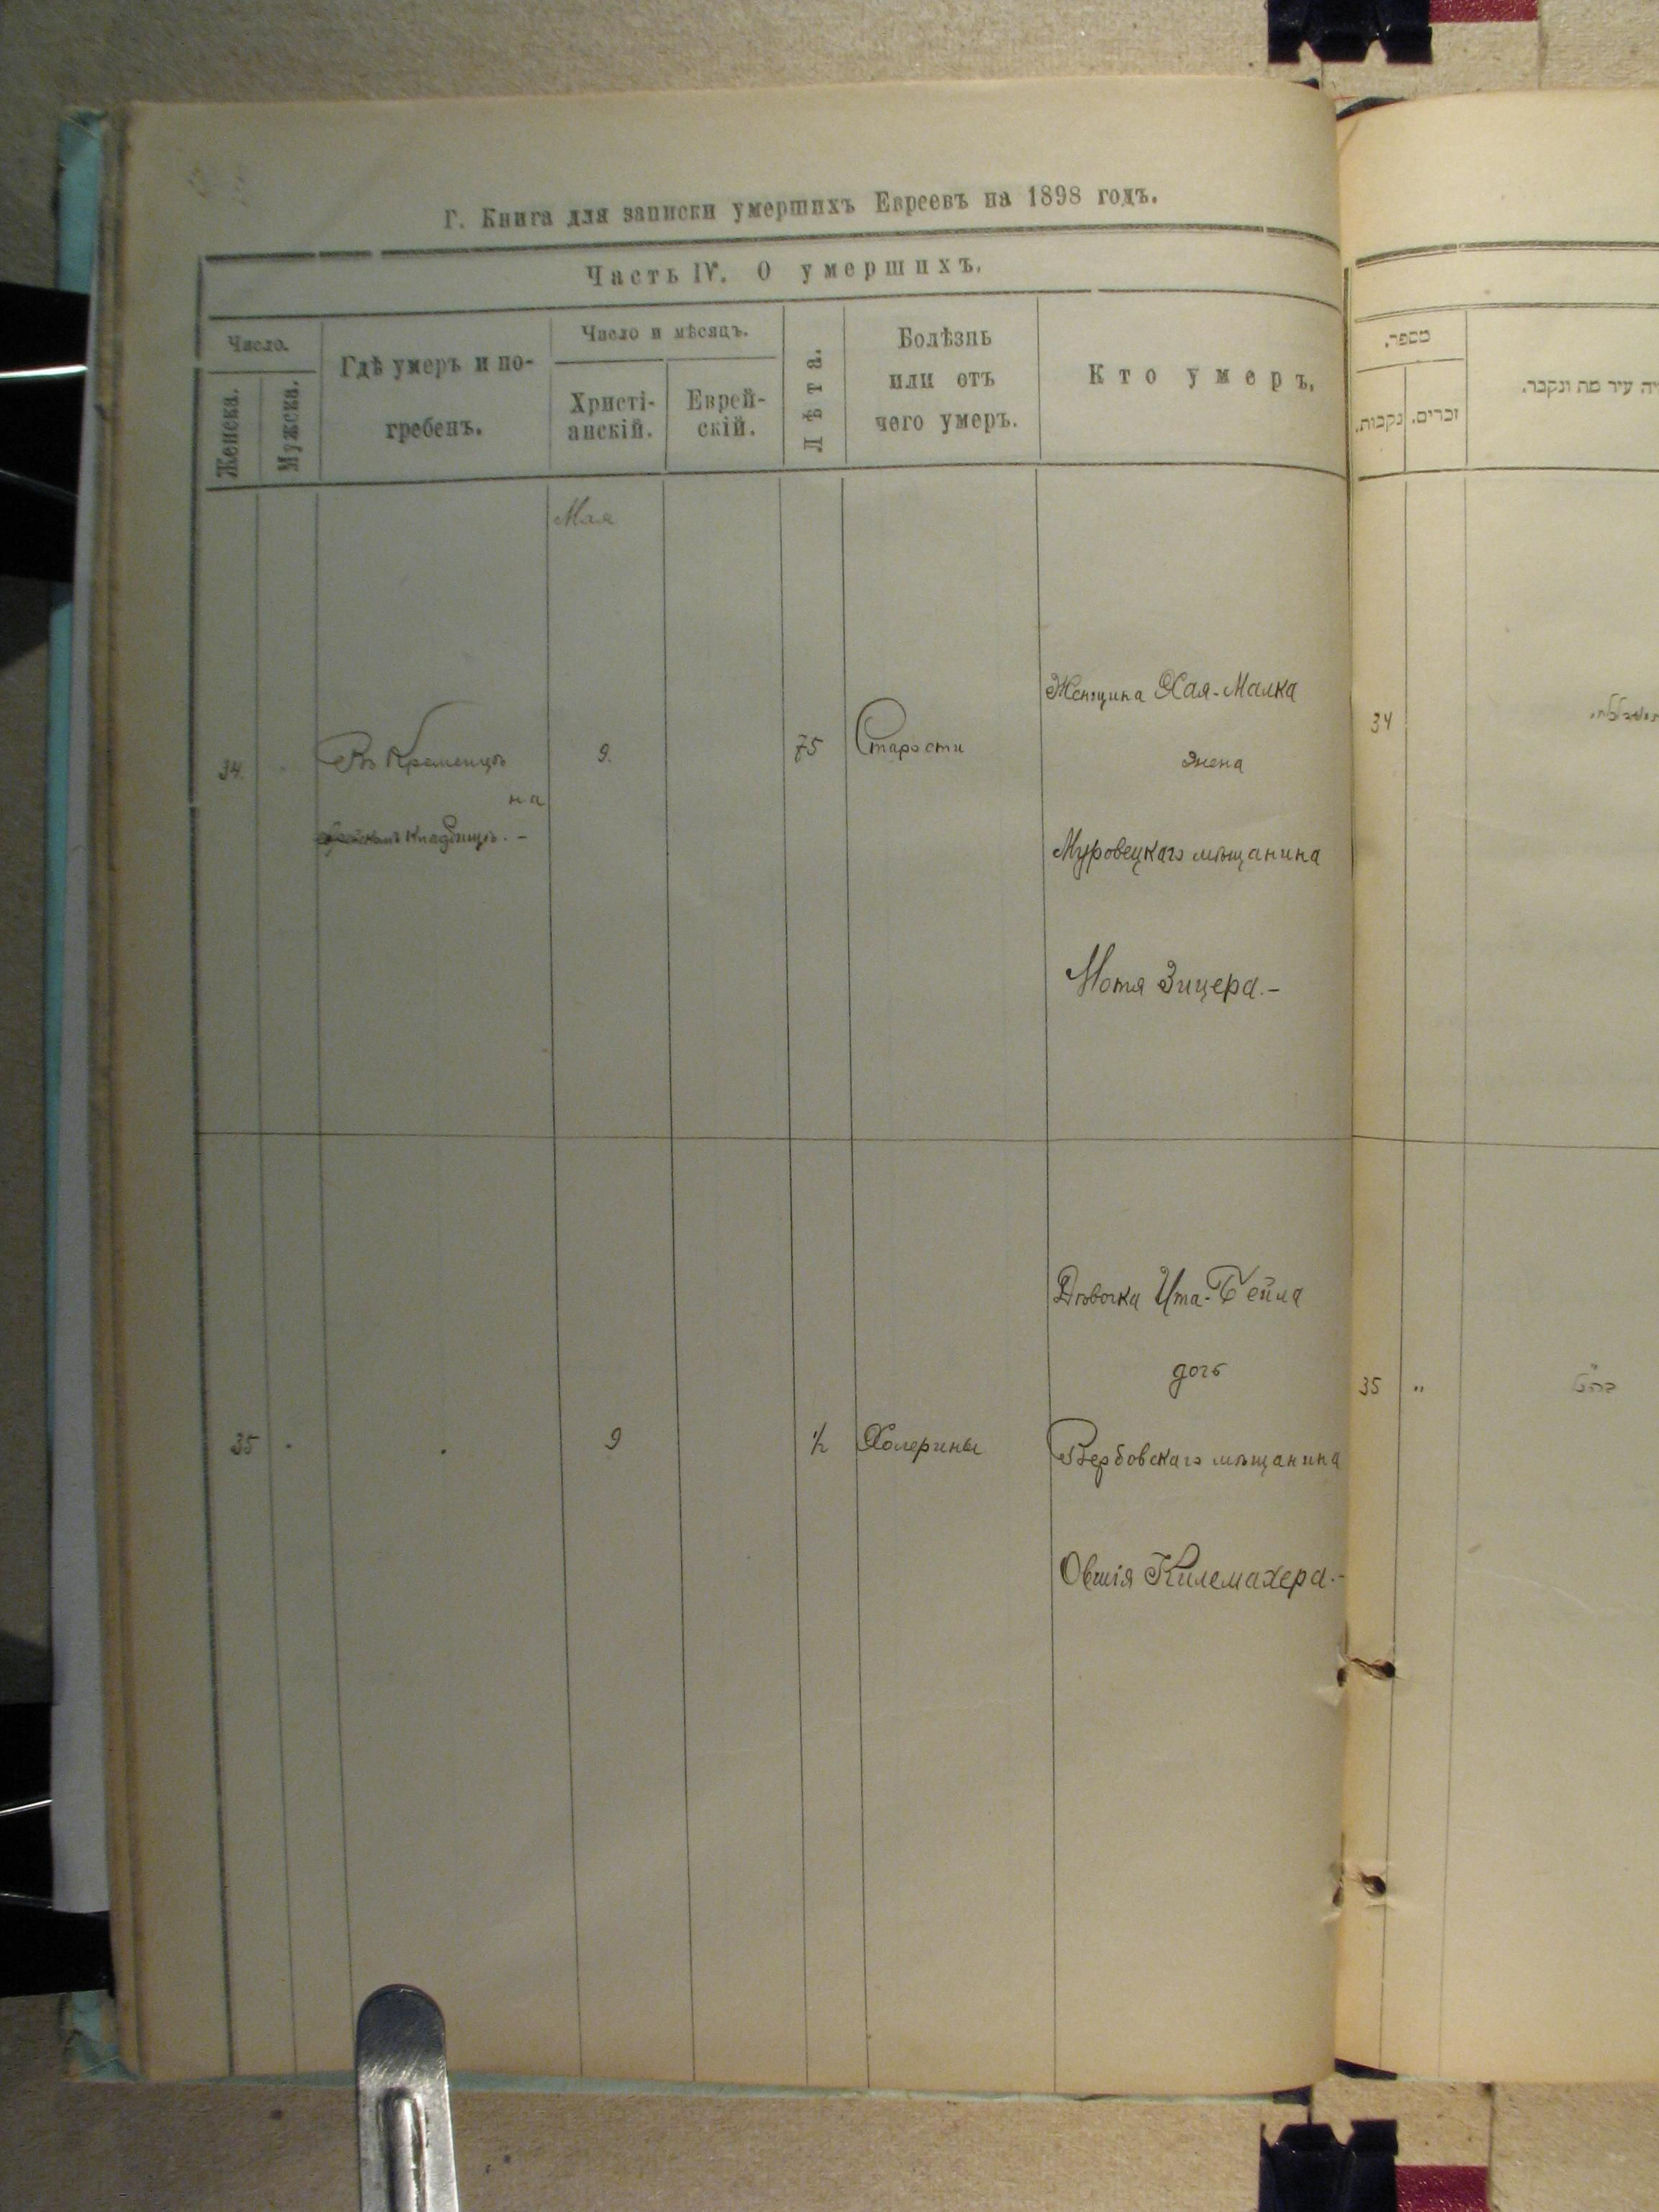 Г. Книга для записки умершихъ Евреевъ на 1898 годъ.
Часть IV. О умершихъ.
Число.
Женска.
Мужска.
Гдѣ умеръ и по-
гребенъ.
Число и мѣсяцъ.
Христі-
анскій.
Еврей-
скій.
Лѣта.
Болѣзнь
или отъ
чего умеръ.
Кто умеръ.
Мая
34.
Въ Кременцѣ
на
кладбищѣ. –
9.
75
Старости
Женщина Хая-Малка
жена
Муровецкаго мѣщанина
Мотя Зицера. –
35
9
1/2
Холерины
Дѣвочка Ита-Бейла
дочь
Вербовскаго мѣщанина
Овшія Килемахера. –
מספר.
נקבות.
זכרים.
עיר מת ונקבר.
34
35 "